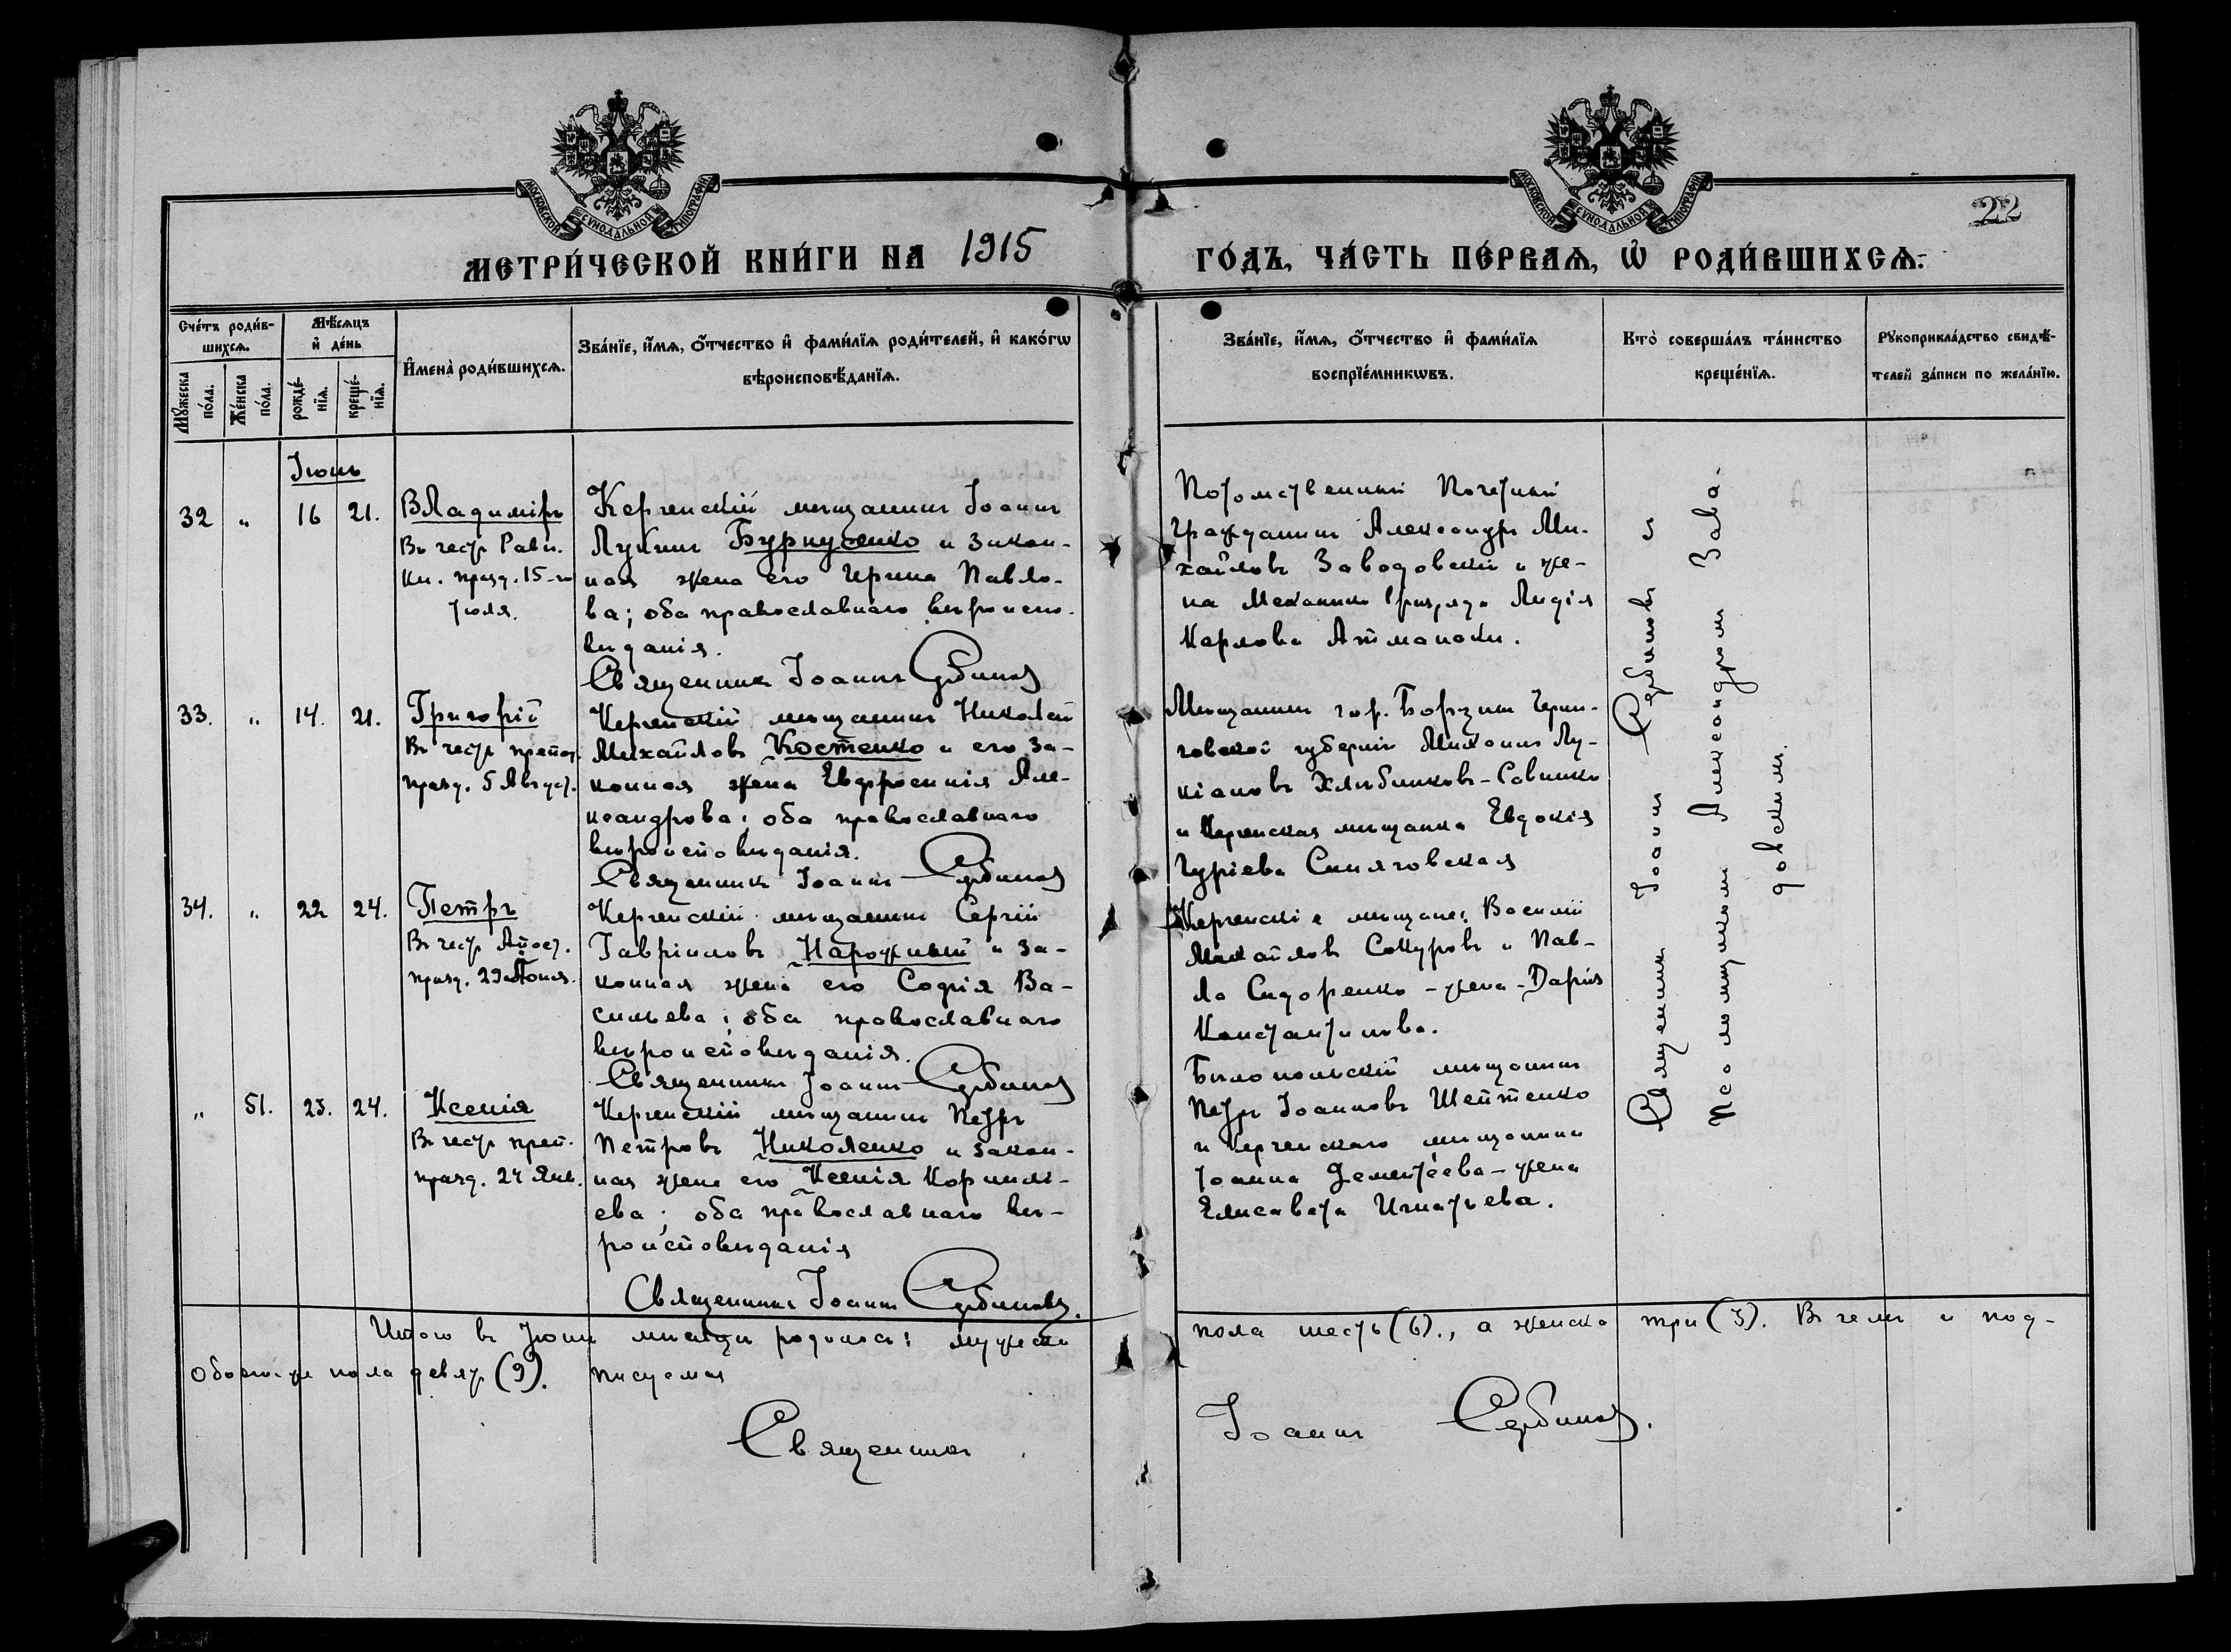 МОСКОВСКОЙ СѴНОДАЛЬНОЙ ТИПОГРАФІИ
МОСКОВСКОЙ СѴНОДАЛЬНОЙ ТИПОГРАФІИ
22
МЕТРИ́ЧЕСКОЙ КНИ́ГИ НА 1915
ГО́ДЪ, ЧА́СТЬ ПЕ́РВАѦ, Ѡ҆ РОДИ́ВШИХСѦ.
Сче́тъ роди́в-
шихсѧ.
Мѣ́сѧцъ
и҆ де́нь
Мꙋ́жеска
по́ла.
Же́нска
по́ла.
рожде́-
нїѧ.
креще́-
нїѧ.
И҆мена̀ роди́вшихсѧ.
Зва́нїе, и҆́мѧ, ѻ҆́тчество и҆ фами́лїѧ роди́телей, и҆ како́гѡ
вѣроисповѣ́данїѧ.
Зва́нїе, и҆́мѧ, ѻ҆́тчество и҆ фами́лїѧ
воспрїе́мникѡвъ.
Кто̀ соверша́лъ та́инство
креще́нїѧ.
Рꙋкоприкла́дство свидѣ́-
телей за́писи по жела́нїю.
Іюнь
32 " 16 21.
Владиміръ
Въ честь Равн.
Кн. празд. 15-го
Іюля.
Керченскій мѣщанинъ Іоаннъ
Лукинъ Бурнусенко и закон-
ная жена его Ирина Павло-
ва; оба православнаго вѣроиспо-
вѣданія.
Священникъ Іоаннъ Сербиновъ
Потомственный Почетный
Гражданинъ Александръ Ми-
хайловъ Заводовскій и же-
на Механика разряда Лидія
Карлова
33. " 14. 21.
Григорій
Въ честь препод.
празд. 5 Август.
Керченскій мѣщанинъ Николай
Михайловъ Костенко и его за-
конная жена Евфросинія Але-
ксандрова; оба православнаго
вѣроисповѣданія.
Священникъ Іоаннъ Сербиновъ
Мѣщанинъ гор. Борзны Черни-
говской губерніи Лу-
кіановъ Хлѣбниковъ-Савинко
и Керченская мѣщанка Евдокія
Гуріева Синяговская
34. " 22 24.
Петръ
Въ честь Апост.
празд. 29 Іюня.
Керченскій мѣщанинъ Сергій
Гавріиловъ Нарожный и за-
конная жена его Софія Ва-
сильева; оба православнаго
вѣроисповѣданія.
Священникъ Іоаннъ Сербиновъ
Керченскіе мѣщане: Василій
Михайловъ Сокуровъ и Пав-
ла Сидоренко - жена - Дарія
Константинова.
" 51. 23. 24.
Ксенія
Въ честь преп.
празд. 24 Янв.
Керченскій мѣщанинъ Петръ
Петровъ Николенко и закон-
ная жена его Ксенія Корнилі-
ева; оба православнаго вѣ-
роисповѣданія
Священникъ Іоаннъ Сербиновъ.
Бѣлопольскій мѣщанинъ
Петръ Іоанновъ Шейтенко
и Керченскаго мѣщанина
Іоанна Дементьева - жена
Елисавета Игнатьева.
Священникъ Іоаннъ Сербиновъ съ
Псаломщикомъ Александромъ Заво-
довскимъ.
Итого въ Іюнѣ мѣсяцѣ родилось: мужеска
пола шесть (6)., а женска три (3). Въ чемъ и под-
Обоего же пола девять (9). писуемся
Священникъ
Іоаннъ Сербиновъ.